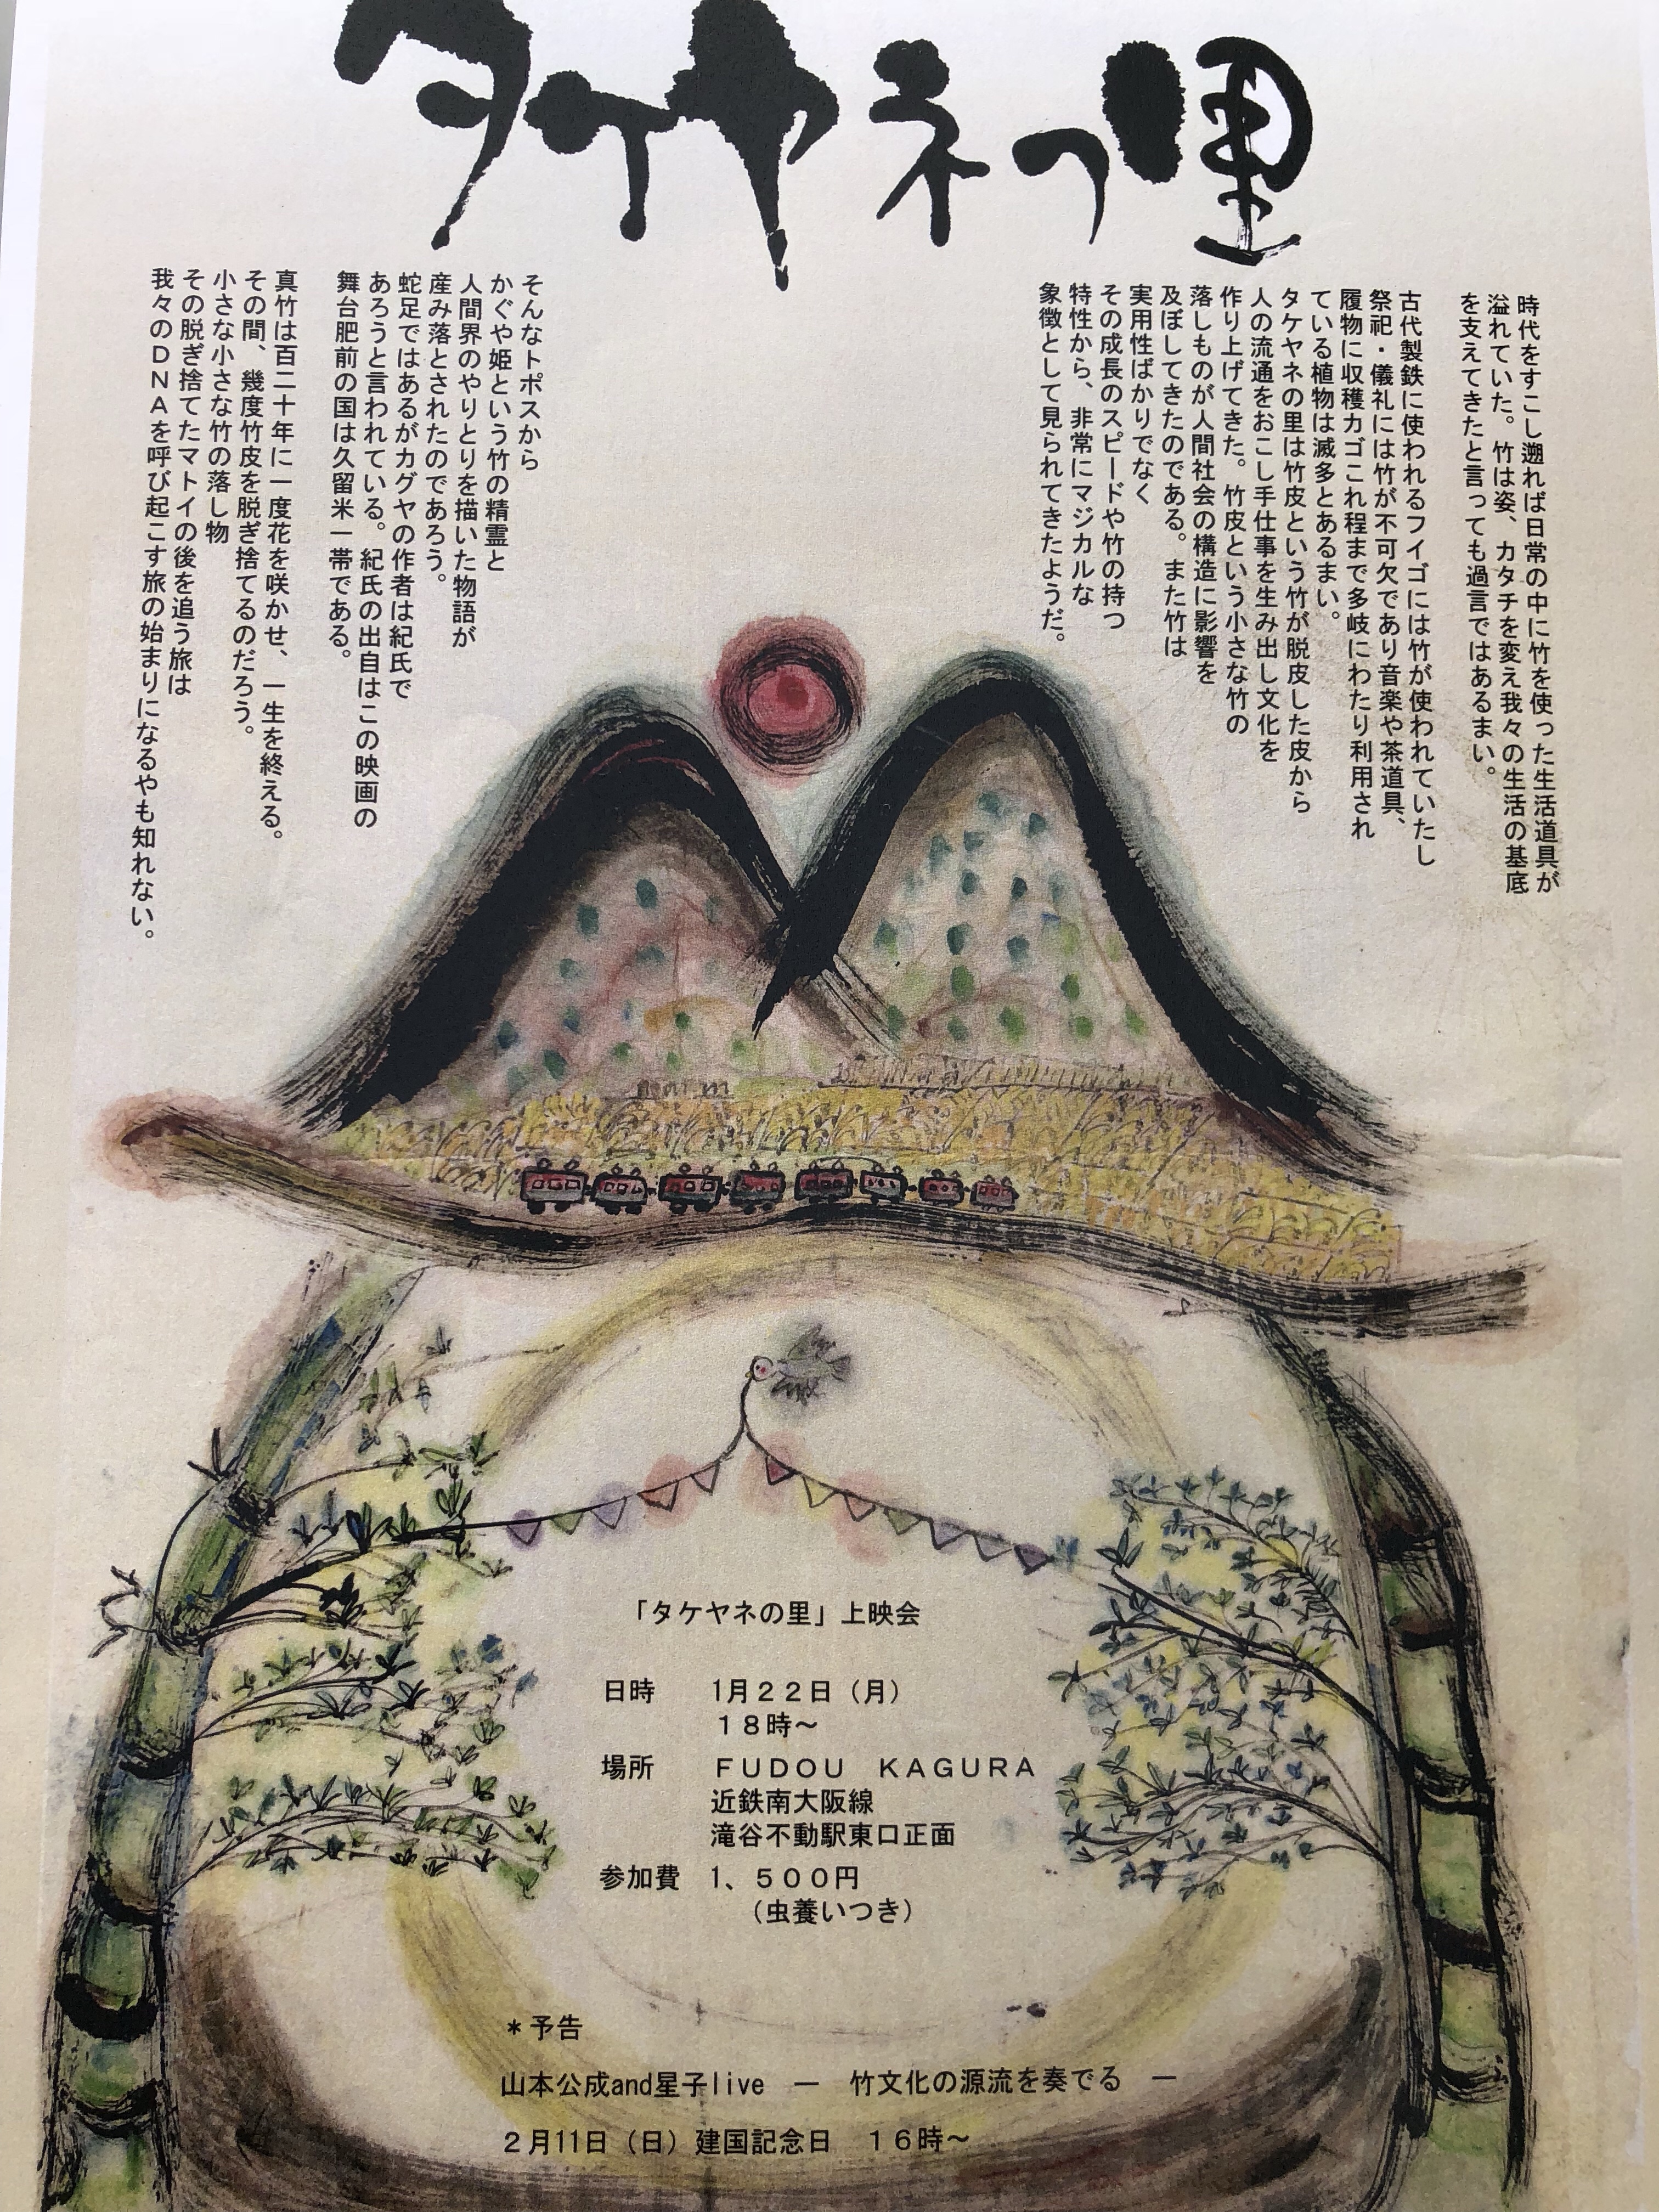 タケヤネの里
時代をすこし遡れば日常の中に竹を使った生活道具が
溢れていた。竹は姿、カタチを変え我々の生活の基底
を支えてきたと言っても過言ではあるまい。
古代製鉄に使われるフイゴには竹が使われていたし
祭祀・儀礼には竹が不可欠であり音楽や茶道具、
履物に収穫カゴこれ程まで多岐にわたり利用され
ている植物は滅多とあるまい。
タケヤネの里は竹皮という竹が脱皮した皮から
人の流通をおこし手仕事を生み出し文化を
作り上げてきた。竹皮という小さな竹の
落しものが人間社会の構造に影響を
及ぼしてきたのである。また竹は
実用性ばかりでなく
その成長のスピードや竹の持つ
特性から、非常にマジカルな
象徴として見られてきたようだ。
そんなトポスから
かぐや姫という竹の精霊と
人間界のやりとりを描いた物語が
産み落とされたのであろう。
蛇足ではあるがカグヤの作者は紀氏で
あろうと言われている。紀氏の出自はこの映画の
舞台肥前の国は久留米一帯である。
真竹は百二十年に一度花を咲かせ、一生を終える。
その間、幾度竹皮を脱ぎ捨てるのだろう。
小さな小さな竹の落し物
その脱ぎ捨てたマトイの後を追う旅は
我々のＤＮＡを呼び起こす旅の始まりになるやも知れない。
「タケヤネの里」上映会
日時　1月２２日（月）
１８時～
場所　ＦＵＤＯＵ　ＫＡＧＵＲＡ
近鉄南大阪線
滝谷不動駅東口正面
参加費　1、５００円
（虫養いつき）
＊予告
山本公成and星子live　―　竹文化の源流を奏でる　―
２月11日（日）建国記念日　１６時～